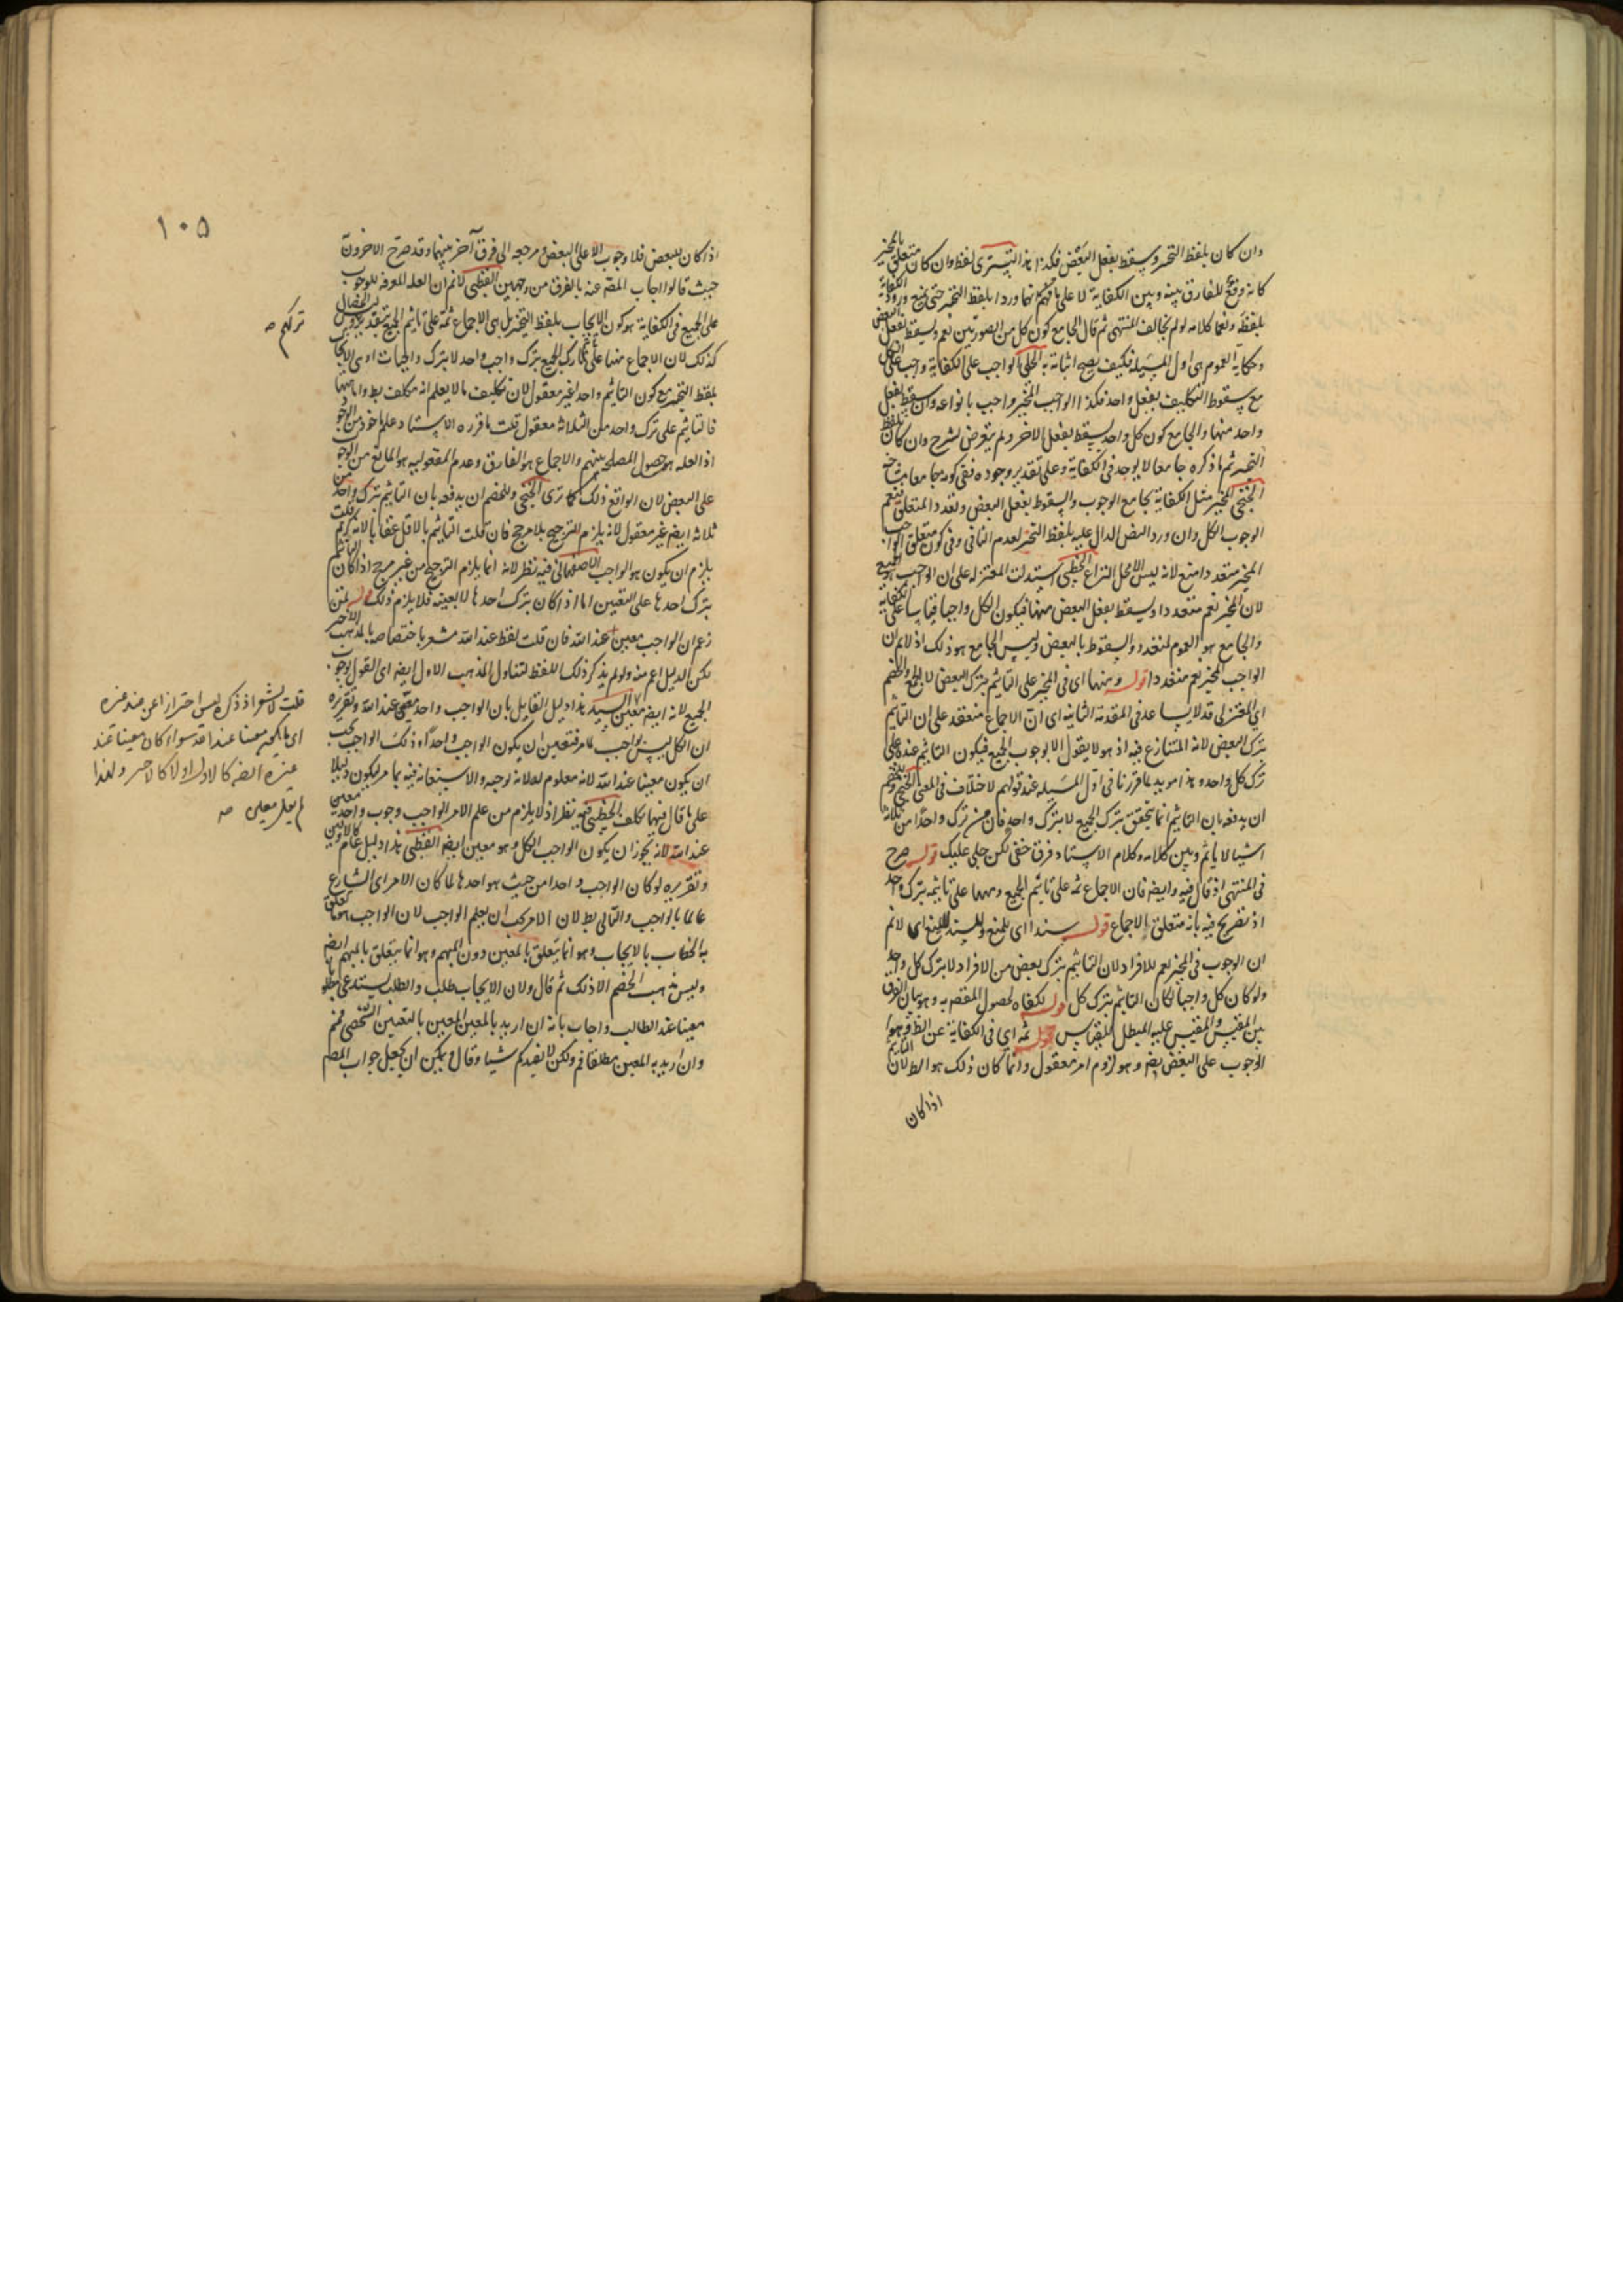 وان كان بلفظ التخيير ويسقط بفعل البعض فكذا هذا التستري لفظ وان كان متعلق بالتخيير
كانه وقع للفارق بينه وبين الكفاية لا على ما فهم انهما وردا بلفظ التخيير حتى يمنع وروده الكفاية
بلفظه ونعما كلامه لو لم يخالف المنتهى ثم قال الجامع كون كل من الصورتين نعم ويسقط بفعل البعض
وحكاية العموم هي اول المسيله فكيف يصح اثباته به الحلي الواجب على الكفاية واجب على الكل
مع سقوط التكليف بفعل واحد فكذا الواجب المخير واجب بانواعه وان سقط بفعل
واحد منها والجامع كون كل واحد يسقط بفعل الاخر ولم يتعرض لشرح وان كان بلفظ
التخيير ثم ما ذكره جامعا لا يوجد في الكفاية وعلى تقدير وجوده ففي كونه جامعا مشاحة
الخنجي المخير مثل الكفاية بجامع الوجوب والسقوط بفعل البعض وتعدد المتعلق فنعم
الوجوب الكل وان ورد النص الدال عليه بلفظ التخيير لعدم التاني وفي كون متعلق الواجب
المخير متعددا منع لانه ليس الا محل النزاع الخطبي استدلت المعتزلة على ان الواجب هو الجميع
لان المخير نعم متعددا ويسقط بفعل البعض منها فيكون الكل واجبا قياسا على الكفاية
والجامع هو العموم لمتعدد والسقوط بالبعض وليس الجامع هو ذلك اذ لانم ان
الواجب المخير نعم متعددا قوله ومنها اي في المخير على التاثيم بترك البعض لا الجميع والخصم
اي المعتزلي قد لا يساعد في المقدمة الثانية اي ان الاجماع منعقد على ان التاثيم
بترك البعض لانه المتنازع فيه اذ هو لا يقول الا بوجوب الجميع فيكون التاثيم عنده على
ترك كل واحد وهذا مويد بما قررنا في اول المسيله عند قولهم لا خلاف في المعنى الخنجي وللخصم
ان يدفعه بان التاثيم انما يتحقق بترك الجميع لا بترك واحد فان من ترك واحدا من ثلاثة
اشيا لا ياثم وبين كلامه وكلام الاستاد فرق خفي لكن جلي عليك قوله صرح
في المنتهى اذ قال فيه وايضا فان الاجماع ثمه على تاثيم الجميع وههنا على تاثيمه بترك واحد
اذ تصريح فيه بانه متعلق الاجماع قوله سندا اي للمنع والسند للمنع اي لانم
ان الوجوب في المخير نعم للافراد لان التاثيم بترك بعض من الافراد لا بترك كل واحد
ولو كان كل واجبا لكان التاثيم بترك كل قوله لكفاه لحصول المقصد به وهو بيان الفرق
بين المقيس والمقيس عليه المبطل للقياس قوله ثمه اي في الكفاية عن الظ وهو
الوجوب على البعض بصه وهو لزوم امر معقول وانما كان ذلك هو الظ لان التاثيم
اذا كان
١٠٥
اذا كان للبعض فلا وجوب الا على البعض ومرجعه الى فرق آخر بينهما وقد صرح الاخرون
حيث قالوا اجاب المصه عنه بالفرق من وجهين القطبي لانم ان العله المعرفه للوجوب
على الجميع في الكفاية هو كون الايجاب بلفظ التخيير بل هي الاجماع ثمة على تاثيم الجميع بتقدير
كذلك لان الاجماع منها على ان تارك الجميع بترك واجب واحد لا بترك واجبات او هي الايجاب
بلفظ التخيير مع كون التاثيم واحد لغير معقول لان تكليف ما لا يعلم انه مكلف بط واما منها
فالتاثيم على ترك واحد من الثلاثة معقول قلت ما قرره الاستاد علم ماخوذ من الوجوه
اذ العله هو حصول المصلحه بينهم والاجماع هو الفارق وعدم المعقوليه هو المانع من الوجوب
على البعض لان الواقع ذلك كما ترى الخنجي وللخصم ان يدفعه بان التاثيم بترك واحد من
ثلاثه ايضا غير معقول لانه يلزم الترجيح بلا مرجح فان قلت التاثيم بالاقل عقابا لانه
يلزم ان يكون هو الواجب الاصفهاني فيه نظر لانه انما يلزم الترجيح من غير مرجح اذا كان التاثيم
بترك احدها على التعيين اما اذا كان بترك احدها لا بعينه فلا يلزم ذلك قوله لمن
زعم ان الواجب معين عند الله فان قلت لفظ عند الله مشعر باختصاصه بالمذهب الاخير
لكن الدليل اعم منه ولو لم يذكر ذلك اللفظ لتناول المذهب الاول ايضا اي القول بوجوب
الجميع لانه ايضا معين السيد هذا دليل القايل بان الواجب واحد معين عند الله وتقريره
ان الكل ليس بواجب لما مر فتعين ان يكون الواجب واحدا وذلك الواجب يجب
ان يكون معينا عند الله لانه معلوم له لانه اوجبه والاستعانة فيه بما مر ليكون دليلا
على ما قال فيها تكلف الخطبي فيه نظر اذ لا يلزم من علم الامر الواجب وجوب واحد معين
عند الله لانه يجوز ان يكون الواجب الكل وهو معين ايضا القطبي هذا دليل عام
وتقريره لو كان الواجب واحدا من حيث هو احدها لما كان الامر اي الشارع
عالما بالواجب والتالي بط لان الامر يجب ان يعلم الواجب لان الواجب ما تعلق
به الخطاب بالايجاب وهو انما يتعلق بالمعين دون المبهم وهو انما يتعلق بالمبهم ايضا
وليس مذهب الخصم الا ذلك ثم قال ولان الايجاب طلب والطلب يستدعي مطلوبا
معينا عند الطالب واجاب بانه ان اريد بالمعين المعين بالتعيين الشخصي فمنم
وان اريد به المعين مطلقا فم ولكن لا يفيدكم شيا وقال ويمكن ان يجعل جواب المصه
تركهم صه
قلت لا يشعر اذ ذكره ليس احترازا عن عند غيره
اي ما يكون معينا عند الله سواء كان معينا عند
غيره ايضا كالاول او لا كالاخير ولهذا
لم يقل معين صه